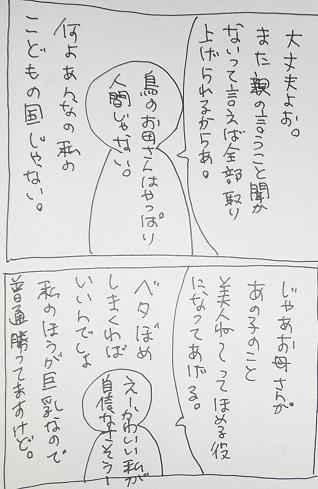 大丈夫よお。
また親の言うこと聞か
ないって言えば全部取り
上げられるからあ。
鳥のお母さんはやっぱり
人間じゃない。
何よあんなの私の
こどもの国じゃない。
じゃあお母さんが
あの子のこと
美人ねーってほめる役
になってあげる。
ベタぼめ
しまくれば
いいんでしょ
えーかわいい私が
自信なさそうー
私のほうが巨乳なので
普通勝ってますけど。